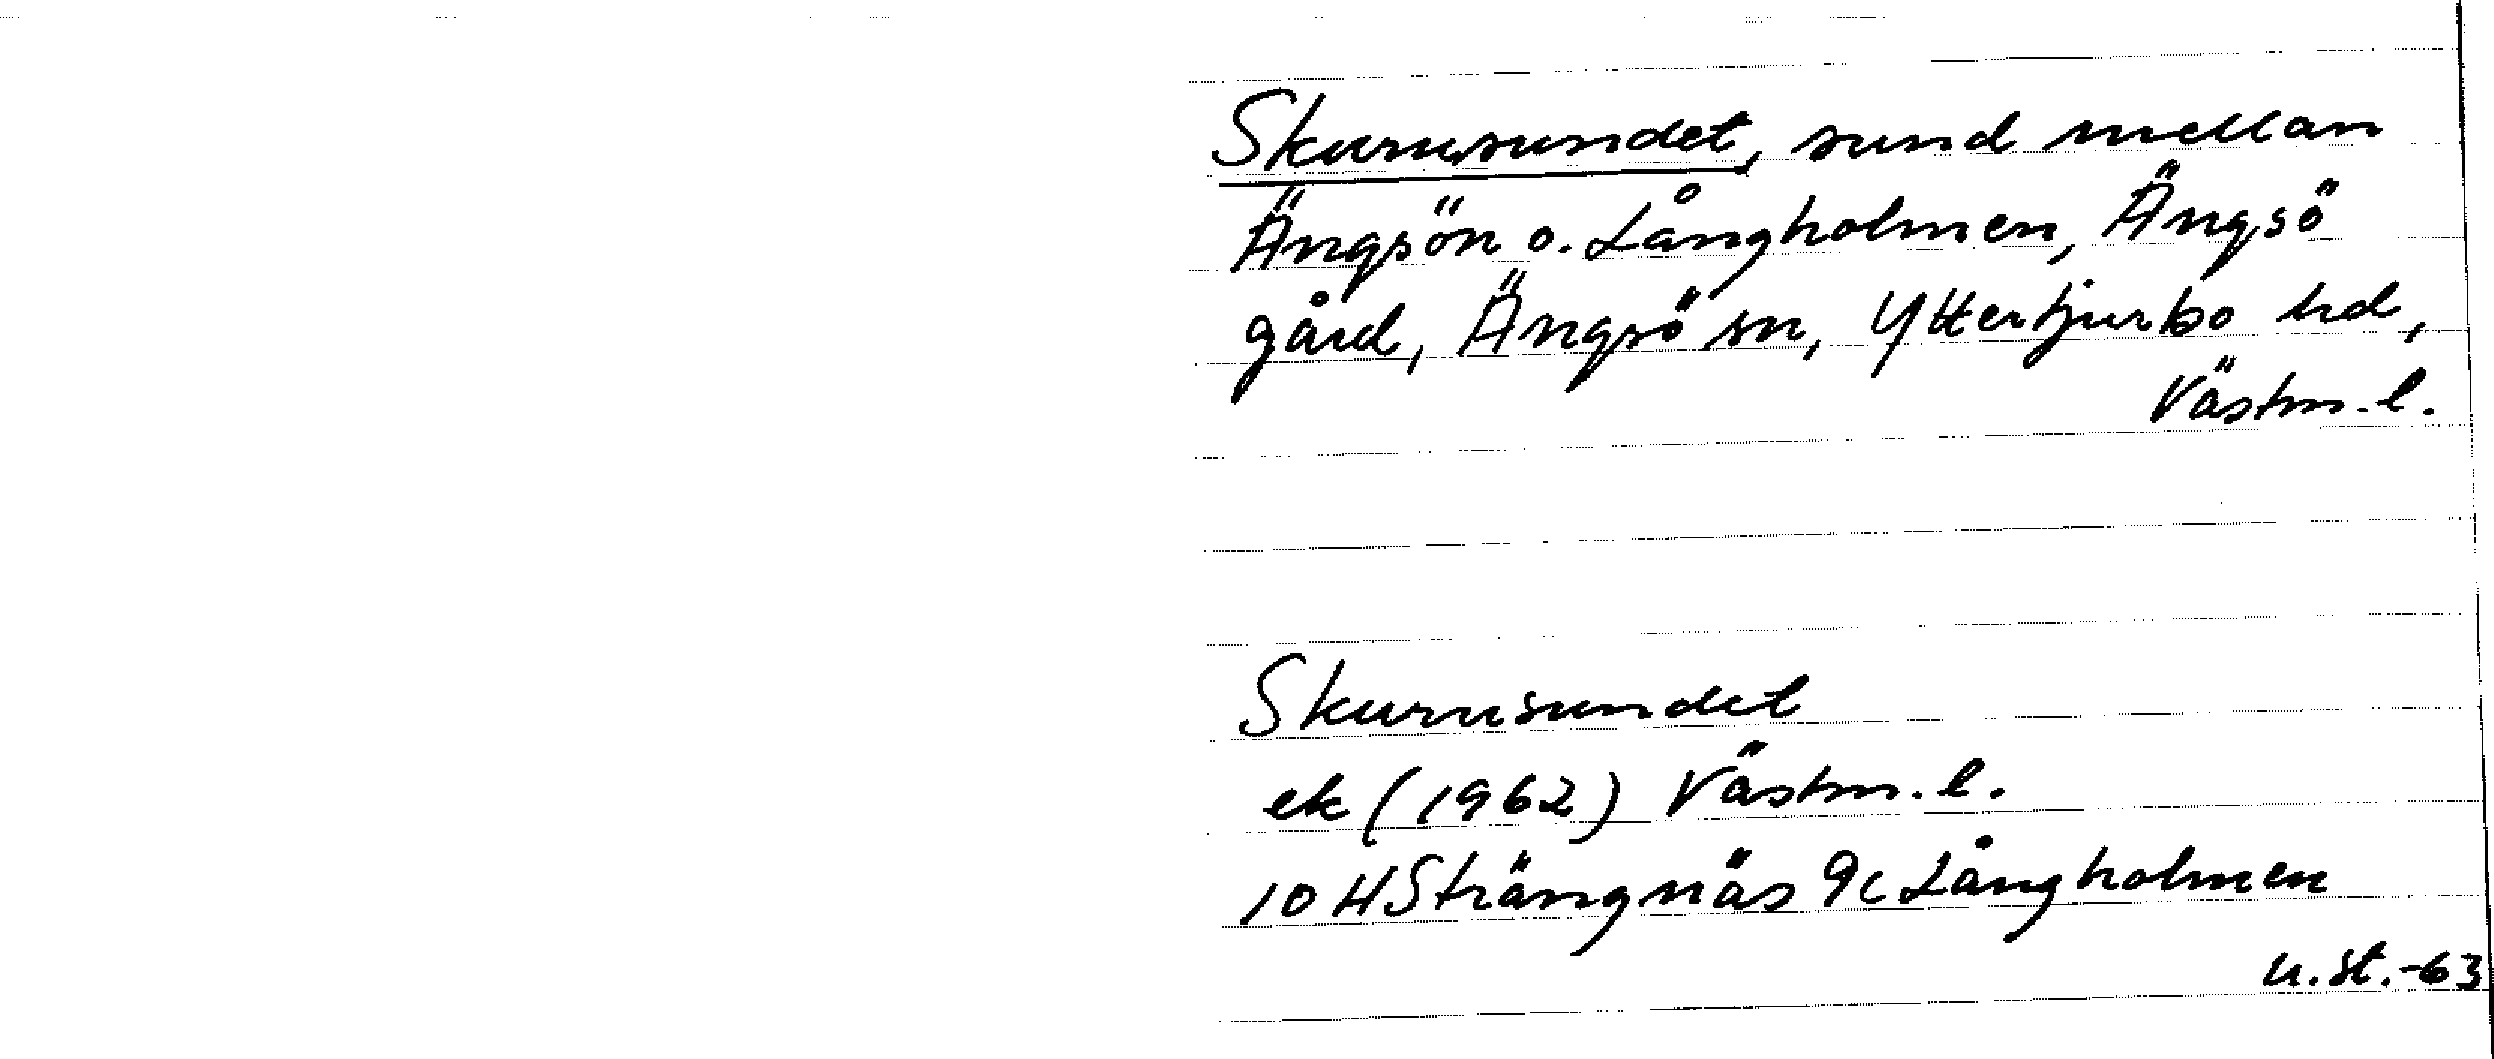 Skurusundet, sund mellan
Ängsön o. Långholmen, Ängsö
gård, Ängsö sn, Yttertjurbo hd,
Västm. l.
Skurusundet
ek (1962) Västm. l.
10 H Strängnäs 9c Långholmen
u. st. -63